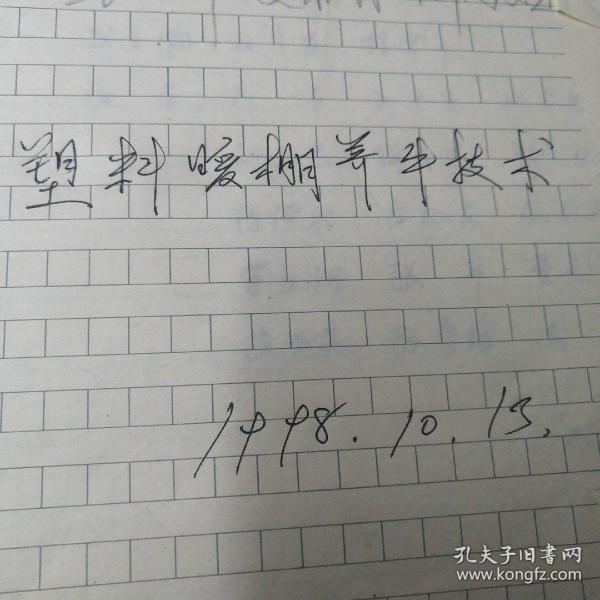 塑料暖棚养牛技术
1998.10.13.
孔夫子旧書网
www.kongfz.com